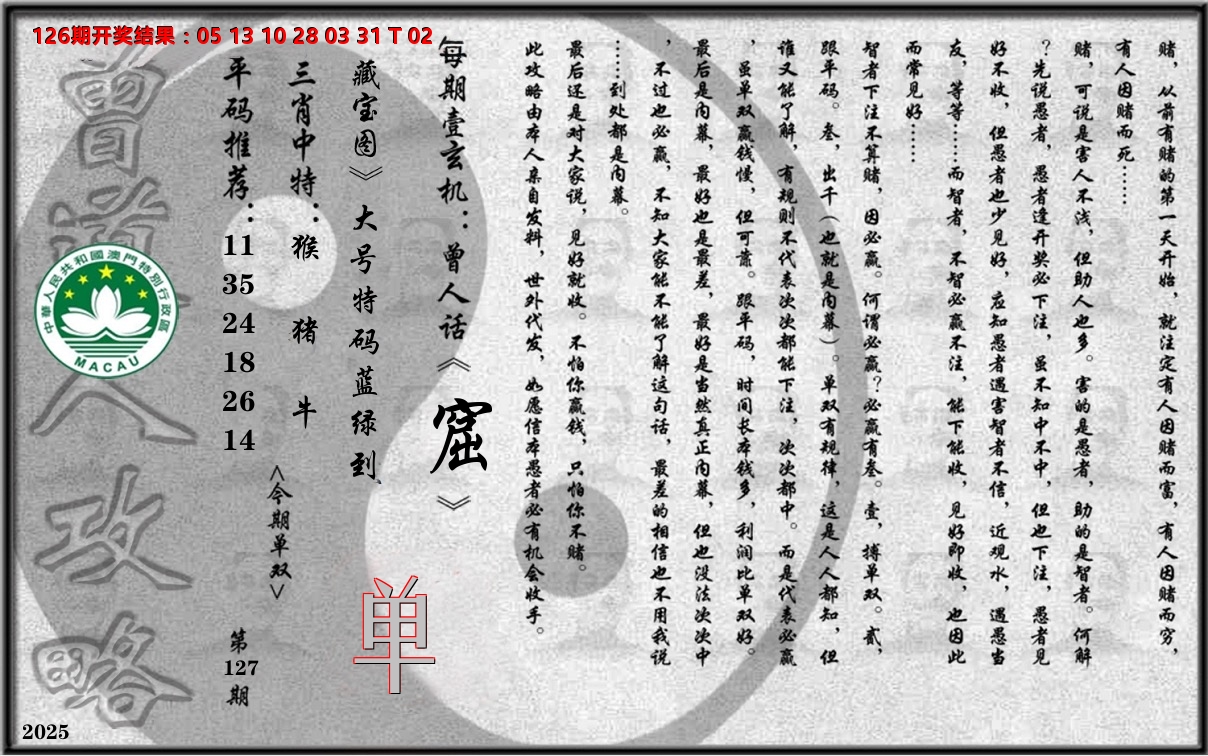 126期开奖结果：05 13 10 28 03 31 T 02
赌，从前有赌的第一天开始，就注定有人因赌而富，有人因赌而穷，
有人因赌而死……
赌，可说是害人不浅，但助人也多。害的是愚者，助的是智者。何解
？先说愚者，愚者逢开奖必下注，虽不知中不中，但也下注，愚者见
好不收，但愚者也少见好，应知愚者遇害智者不信，近观水，遇愚当
友，等等……而智者，不智必赢不注，能下能收，见好即收，也因此
而常见好……
智者下注不算赌，因必赢。何谓必赢？必赢有叁。壹，搏单双。贰，
跟平码。叁，出千（也就是内幕）。单双有规律，这是人人都知，但
谁又能了解，有规则不代表次次都能下注，次次都中。而是代表必赢
，虽单双赢钱慢，但可靠。跟平码，时间长本钱多，利润比单双好。
最后是内幕，最好也是最差，最好是当然真正内幕，但也没法次次中
，不过也必赢，不知大家能不能了解这句话，最差的相信也不用我说
……到处都是内幕。
最后还是对大家说，见好就收。不怕你赢钱，只怕你不赌。
此攻略由本人亲自发料，世外代发，如愿信本愚者必有机会收手。
每期壹玄机：曾人话《窟》
藏宝图》大号特码蓝绿到
单
三肖中特：猴 猪 牛
<今期单双>
平码推荐：11 35 24 18 26 14
第127期
曾道人攻略
中華人民共和國澳門特別行政區
MACAU
2025